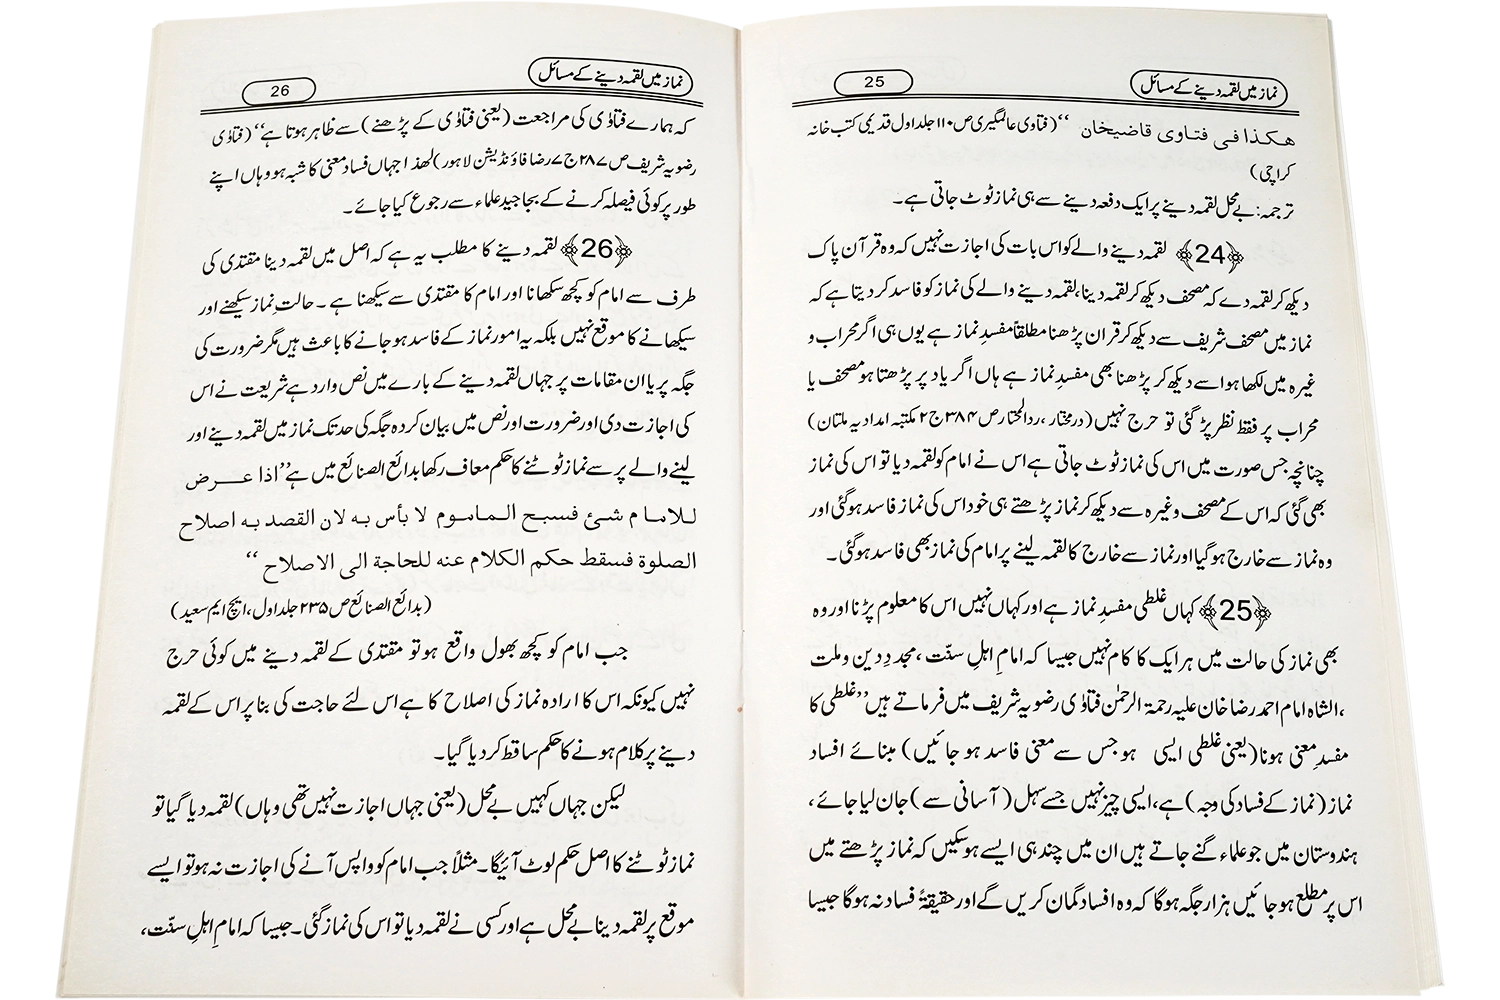 نماز میں لقمہ دینے کے مسائل
25
ھکذا فی فتاوی قاضیخان ‘‘ (فتاوی عالمگیری ص ۱۱۰ جلد اول قدیمی کتب خانہ
کراچی)
ترجمہ: بے محل لقمہ دینے پر ایک دفعہ دینے سے ہی نماز ٹوٹ جاتی ہے۔
﴿24﴾ لقمہ دینے والے کو اس بات کی اجازت نہیں کہ وہ قرآن پاک
دیکھ کر لقمہ دے کہ مصحف دیکھ کر لقمہ دینا، لقمہ دینے والے کی نماز کو فاسد کر دیتا ہے کہ
نماز میں مصحف شریف سے دیکھ کر قرآن پڑھنا مطلقاً مفسدِ نماز ہے یوں ہی اگر محراب و
غیرہ میں لکھا ہو اسے دیکھ کر پڑھنا بھی مفسدِ نماز ہے ہاں اگر یاد پر پڑھتا ہو مصحف یا
محراب پر فقط نظر پڑ گئی تو حرج نہیں (درمختار، ردالمختار ص ۳۸۴ ج ۲ مکتبہ امدادیہ ملتان)
چنانچہ جس صورت میں اس کی نماز ٹوٹ جاتی ہے اس نے امام کو لقمہ دیا تو اس کی نماز
بھی گئی کہ اس کے مصحف وغیرہ سے دیکھ کر نماز پڑھتے ہی خود اس کی نماز فاسد ہو گئی اور
وہ نماز سے خارج ہو گیا اور نماز سے خارج کا لقمہ لینے پر امام کی نماز بھی فاسد ہو گئی۔
﴿25﴾ کہاں غلطی مفسدِ نماز ہے اور کہاں نہیں اس کا معلوم پڑنا اور وہ
بھی نماز کی حالت میں ہر ایک کا کام نہیں جیسا کہ امامِ اہلِ سنّت ، مجددِ دین وملت
،الشاہ امام احمد رضا خان علیہ رحمۃ الرحمٰن فتاوٰی رضویہ شریف میں فرماتے ہیں ’’غلطی کا
مفسدِ معنی ہونا (یعنی غلطی ایسی ہو جس سے معنی فاسد ہو جائیں) مبنائے افساد
نماز (نماز کے فساد کی وجہ) ہے، ایسی چیز نہیں جسے سہل (آسانی سے) جان لیا جائے،
ہندوستان میں جو علماء گنے جاتے ہیں ان میں چند ہی ایسے ہو سکیں کہ نماز پڑھتے میں
اس پر مطلع ہو جائیں ہزار جگہ ہوگا کہ وہ افساد گمان کریں گے اور حقیقۃً فساد نہ ہوگا جیسا
نماز میں لقمہ دینے کے مسائل
26
کہ ہمارے فتاوٰی کی مراجعت (یعنی فتاوٰی کے پڑھنے) سے ظاہر ہوتا ہے ‘‘ (فتاوٰی
رضویہ شریف ص ۲۸۷ ج ۷ رضا فاؤنڈیشن لاہور) لھذا جہاں فساد معنی کا شبہ ہو وہاں اپنے
طور پر کوئی فیصلہ کرنے کے بجائے جید علماء سے رجوع کیا جائے۔
﴿26﴾ لقمہ دینے کا مطلب یہ ہے کہ اصل میں لقمہ دینا مقتدی کی
طرف سے امام کو کچھ سکھانا اور امام کا مقتدی سے سیکھنا ہے ۔ حالتِ نماز سیکھنے اور
سیکھانے کا موقع نہیں بلکہ یہ امور نماز کے فاسد ہو جانے کا باعث ہیں مگر ضرورت کی
جگہ پر یا ان مقامات پر جہاں لقمہ دینے کے بارے میں نص وارد ہے شریعت نے اس
کی اجازت دی اور ضرورت اور نص میں بیان کردہ جگہ کی حد تک نماز میں لقمہ دینے اور
لینے والے پر سے نماز ٹوٹنے کا حکم معاف رکھا بدائع الصنائع میں ہے ’’اذا عرض
للامام شئ فسبح المأموم لا بأس بہ لان القصد بہ اصلاح
الصلوۃ فسقط حکم الکلام عنہ للحاجۃ الی الاصلاح ‘‘
(بدائع الصنائع ص ۲۳۵ جلد اول، ایچ ایم سعید)
جب امام کو کچھ بھول واقع ہو تو مقتدی کے لقمہ دینے میں کوئی حرج
نہیں کیونکہ اس کا ارادہ نماز کی اصلاح کا ہے اس لئے حاجت کی بنا پر اس کے لقمہ
دینے پر کلام ہونے کا حکم ساقط کر دیا گیا۔
لیکن جہاں کہیں بے محل (یعنی جہاں اجازت نہیں تھی وہاں) لقمہ دیا گیا تو
نماز ٹوٹنے کا اصل حکم لوٹ آئیگا۔ مثلاً جب امام کو واپس آنے کی اجازت نہ ہو تو ایسے
موقع پر لقمہ دینا بے محل ہے اور کسی نے لقمہ دیا تو اس کی نماز گئی۔ جیسا کہ امامِ اہلِ سنّت،